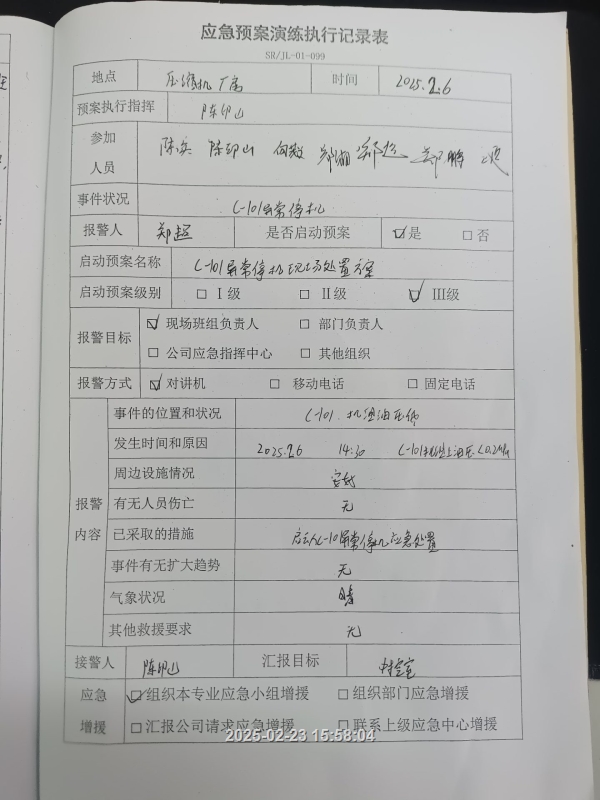 应急预案演练执行记录表
SR/JL-01-099
地点 压缩机厂房 时间 2025.2.6
预案执行指挥 陈印山
参加人员 陈兵 陈印山 郑超
事件状况 C-101异常停机
报警人 郑超 是否启动预案 ☑是 □否
启动预案名称 C-101异常停机现场处置方案
启动预案级别 □Ⅰ级 □Ⅱ级 ☑Ⅲ级
报警目标 ☑现场班组负责人 □部门负责人
□公司应急指挥中心 □其他组织
报警方式 ☑对讲机 □移动电话 □固定电话
报警内容
事件的位置和状况 C-101.机组油压低
发生时间和原因 2025.2.6 14:30 C-101 油压<0.2MPa
周边设施情况 完好
有无人员伤亡 无
已采取的措施 启动C-101异常停机应急处置
事件有无扩大趋势 无
气象状况 晴
其他救援要求 无
接警人 陈印山 汇报目标 中控室
应急增援 ☑组织本专业应急小组增援 □组织部门应急增援
□汇报公司请求应急增援 □联系上级应急中心增援
2025-02-23 15:58:04